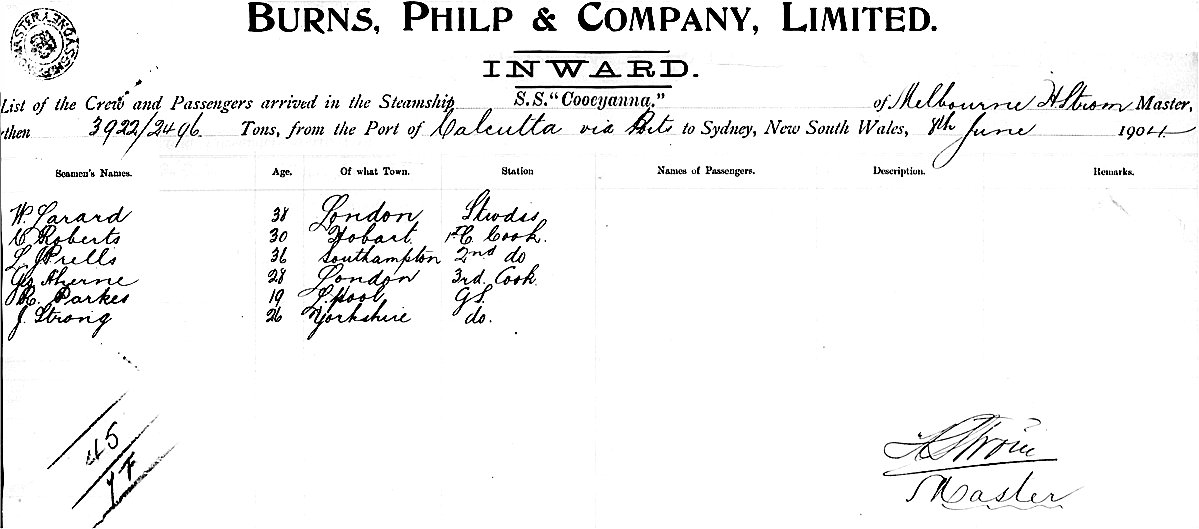 BURNS, PHILP & COMPANY, LIMITED.
INWARD.
List of the Crew and Passengers arrived in the Steamship S.S. "Cooeyanna." of Melbourne H Strom Master,
then 3922/2496 Tons, from the Port of Calcutta via Pts to Sydney, New South Wales, 8th June 1904
Seamen's Names. Age. Of what Town. Station Names of Passengers. Description. Remarks.
W. Larard 38 London
C Roberts 30 Hobart 1st C. Cook.
L. J Prells 36 Southampton 2nd do
Aherne 28 London 3rd. Cook
R. Parkes 19 L.pool GS.
J. Strong 26 Yorkshire do.
45
H Strom
Master